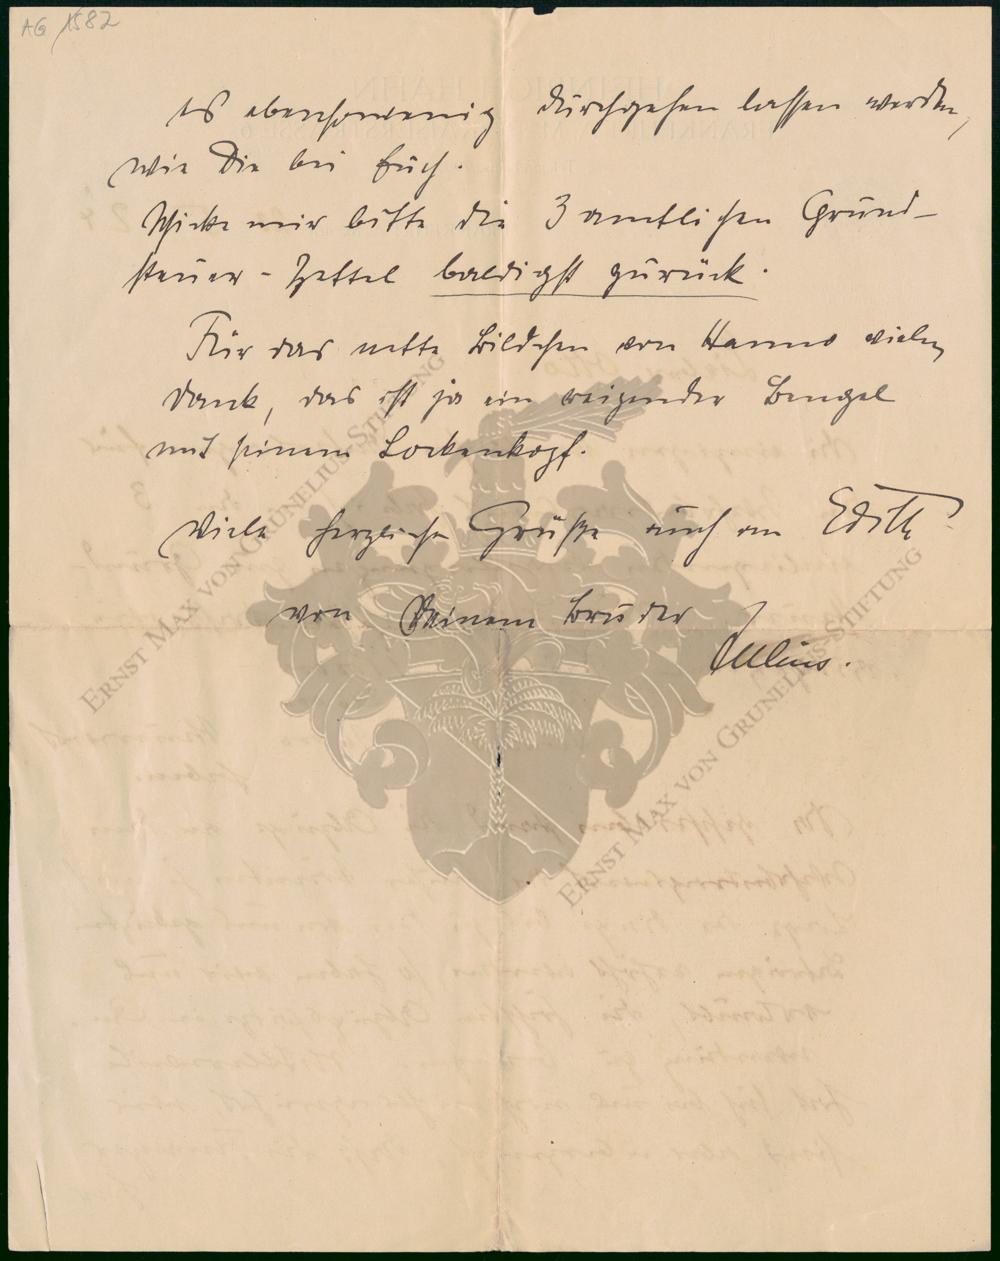 AG 1582
es ebensowenig durchgehen lassen werden,
wie die bei Euch.
Schicke mir bitte die 3 amtlichen Grund-
steuer-Zettel baldigst zurück.
Für das nette Bildchen von Hanno vielen
Dank, das ist ja ein reizender Bengel
mit seinem Lockenkopf.
Viele herzliche Grüße auch an Edith
von Deinem Bruder
ERNST MAX VON GRUNELIUS-STIFTUNG
ERNST MAX VON GRUNELIUS-STIFTUNG